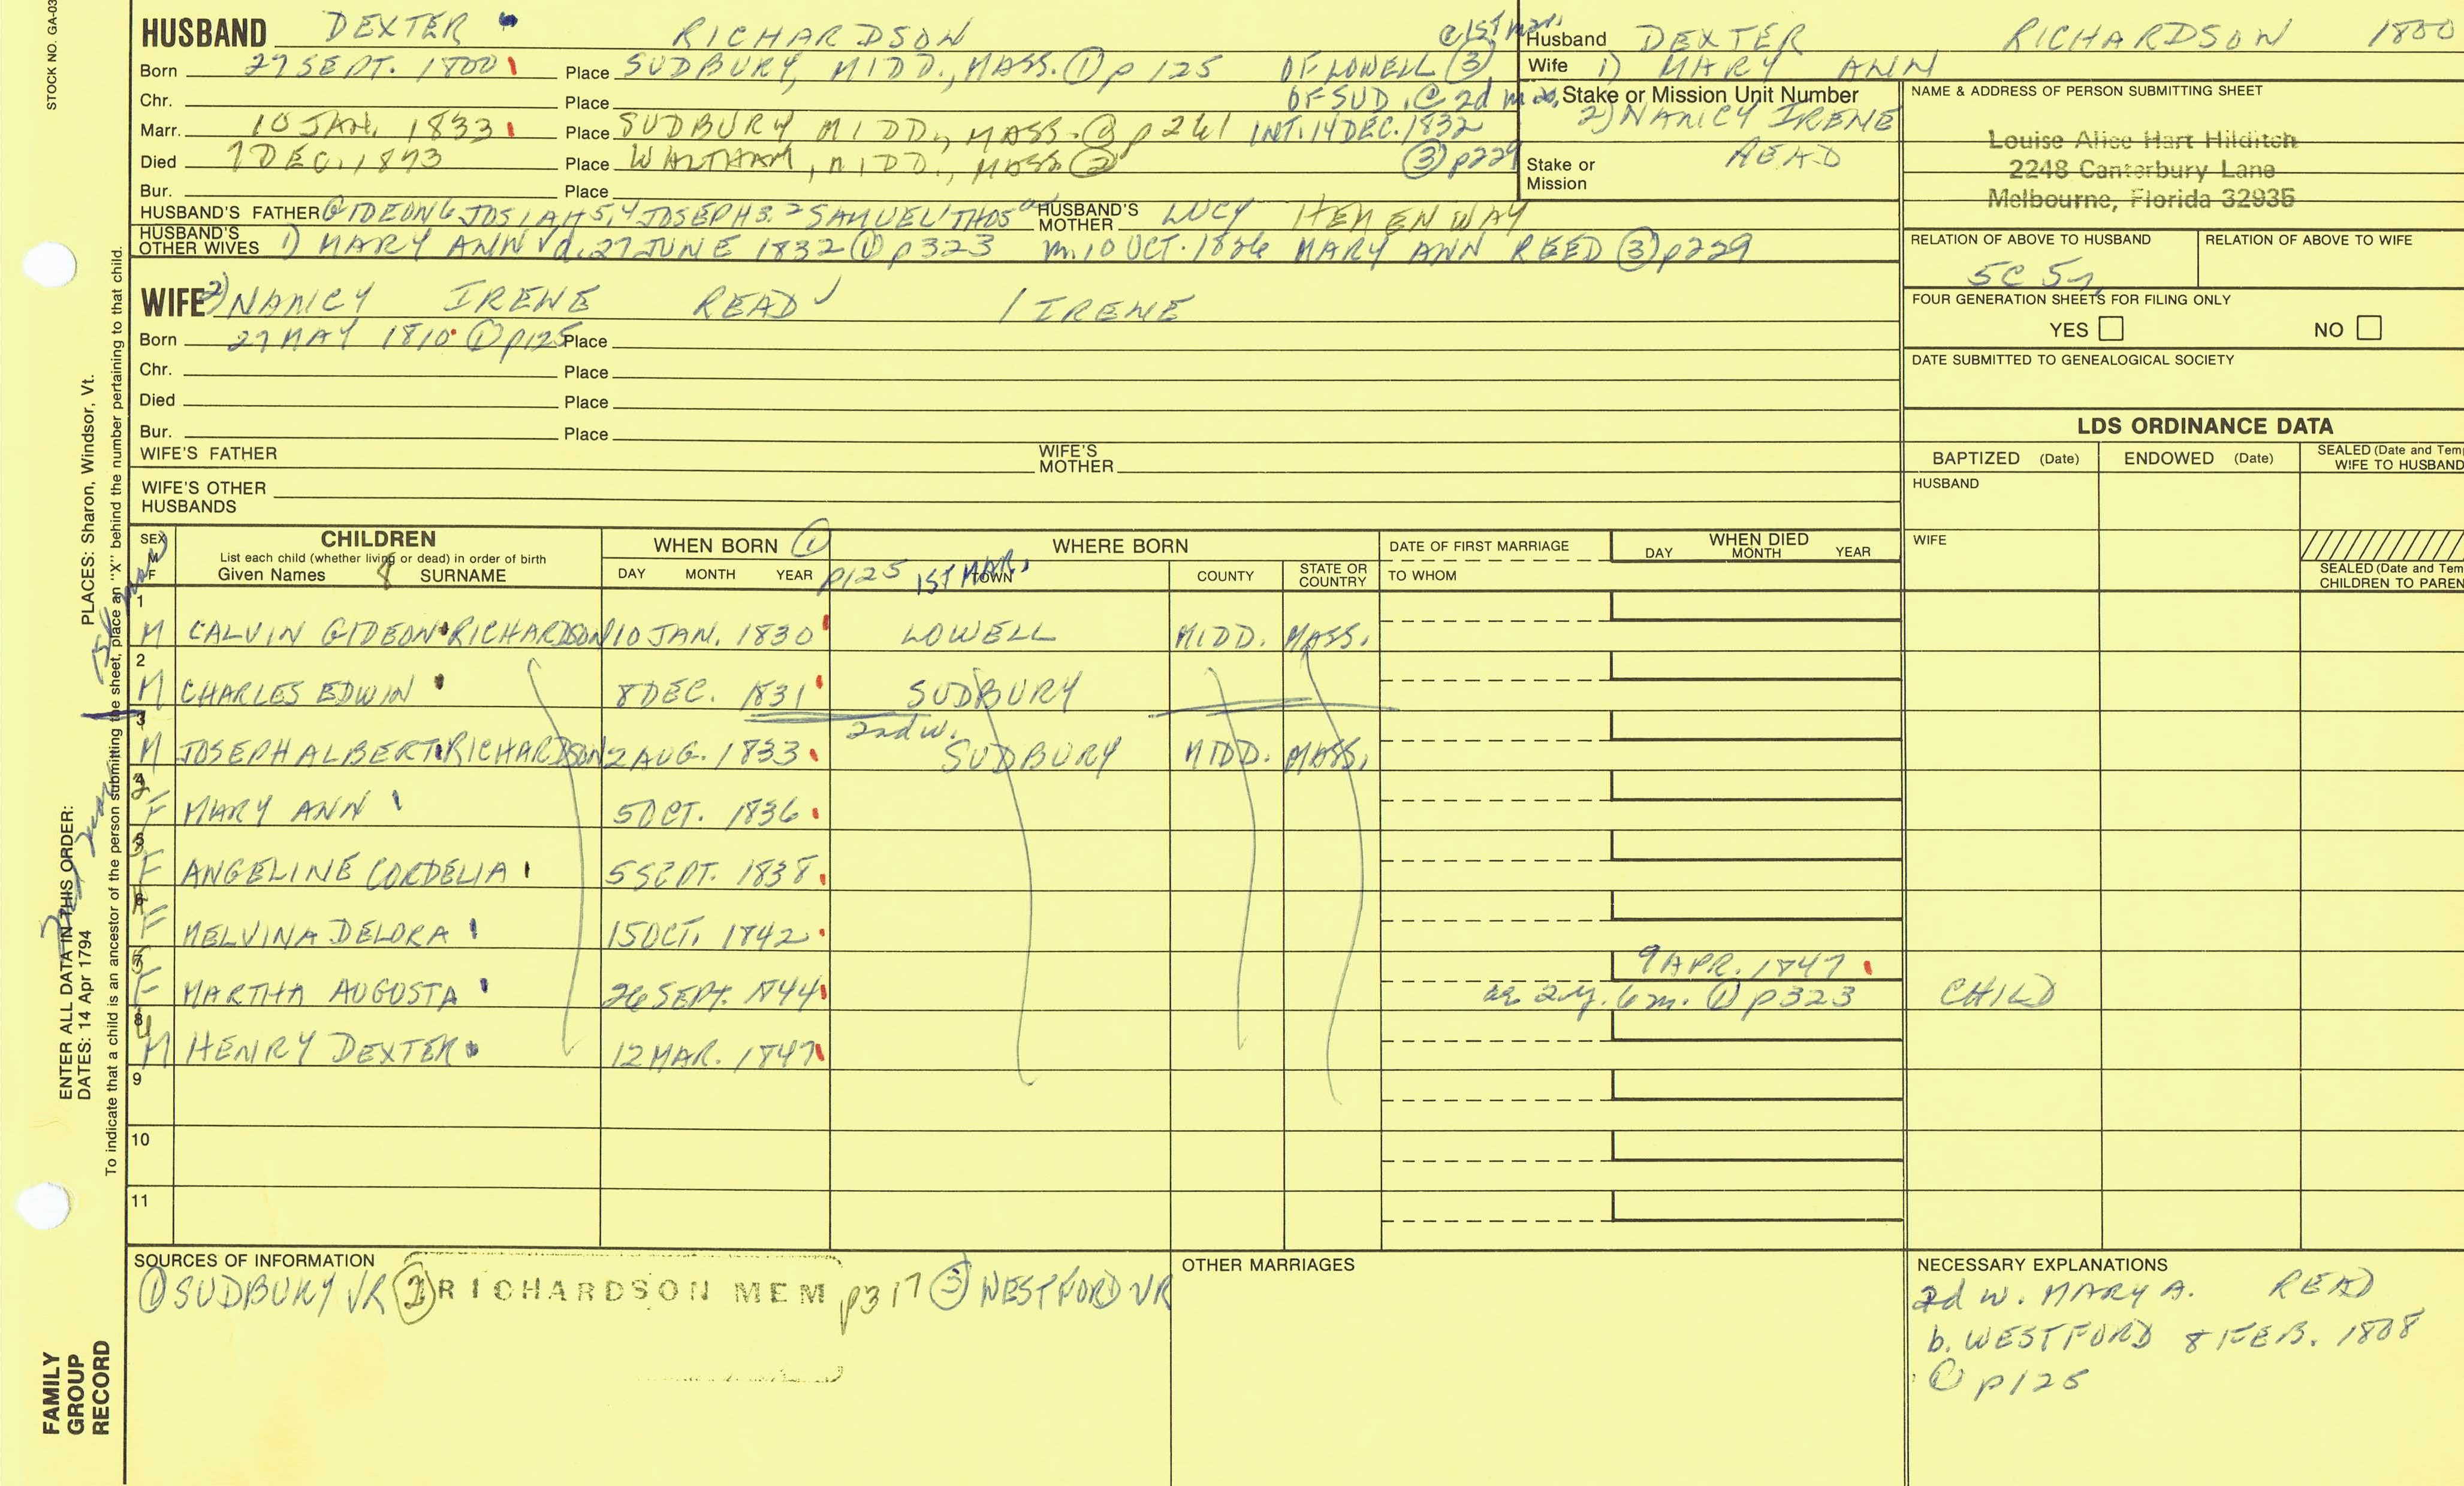 STOCK NO. GA-03
HUSBAND DEXTER RICHARDSON @ 1st mar.
Born 27 SEPT. 1800 Place SUDBURY, MIDD., MASS. ① p 125 OF LOWELL ③
Chr. Place OF SUD. @ 2d mar.
Marr. 10 JAN. 1833 Place SUDBURY MIDD., MASS. p 241 INT. 14 DEC. 1832
Died 7 DEC. 1873 Place WALTHAM, MIDD., MASS. ② ③ p229
Bur. Place
HUSBAND'S FATHER GIDEON6 JOSIAH5,4 JOSEPH3, 2 SAMUEL1 THOS HUSBAND'S MOTHER LUCY HEMENWAY
HUSBAND'S OTHER WIVES 1) MARY ANN d. 27 JUNE 1832 ① p323 m. 10 OCT. 1826 MARY ANN REED ③ p229
Husband DEXTER RICHARDSON 1800
Wife 1) MARY ANN
Stake or Mission Unit Number
2) NANCY IRENE
READ
Stake or Mission
NAME & ADDRESS OF PERSON SUBMITTING SHEET
Louise Alice Hart Hilditch
2248 Canterbury Lane
Melbourne, Florida 32935
RELATION OF ABOVE TO HUSBAND RELATION OF ABOVE TO WIFE
5C 5r.
FOUR GENERATION SHEETS FOR FILING ONLY
YES NO
DATE SUBMITTED TO GENEALOGICAL SOCIETY
WIFE 2) NANCY IRENE READ / IRENE
Born 27 MAY 1810 ① p125 Place
Chr. Place
Died Place
Bur. Place
WIFE'S FATHER WIFE'S MOTHER
WIFE'S OTHER HUSBANDS
LDS ORDINANCE DATA
BAPTIZED (Date) ENDOWED (Date) SEALED (Date and Tem
WIFE TO HUSBAND
HUSBAND
WIFE
SEALED (Date and Tem
CHILDREN TO PAREN
SEX M F CHILDREN WHEN BORN ① WHERE BORN DATE OF FIRST MARRIAGE WHEN DIED
List each child (whether living or dead) in order of birth DAY MONTH YEAR
Given Names 8 SURNAME DAY MONTH YEAR p125 1ST MAR. TOWN COUNTY STATE OR COUNTRY TO WHOM
1 M CALVIN GIDEON RICHARDSON 10 JAN. 1830 LOWELL MIDD. MASS.
2 M CHARLES EDWIN 8 DEC. 1831 SUDBURY
2nd w.
3 M JOSEPH ALBERT RICHARDSON 2 AUG. 1833 SUDBURY MIDD. MASS.
4 2 F MARY ANN 5 OCT. 1836
5 3 F ANGELINE CORDELIA 5 SEPT. 1838
6 4 F MELVINA DELORA 15 OCT. 1842
9 APR. 1847
7 5 F MARTHA AUGUSTA 26 SEPT. 1844 ae 2y. 6m. ① p323 CHILD
8 M HENRY DEXTER 12 MAR. 1847
9
10
11
SOURCES OF INFORMATION
① SUDBURY VR ② RICHARDSON MEM p317 ③ WESTFORD VR
OTHER MARRIAGES
NECESSARY EXPLANATIONS
2d w. MARY A. READ
b. WESTFORD 8 FEB. 1808
① p125
PLACES: Sharon, Windsor, Vt.
ENTER ALL DATA IN THIS ORDER:
DATES: 14 Apr 1794
To indicate that a child is an ancestor of the person submitting the sheet, place an "X" behind the number pertaining to that child.
FAMILY
GROUP
RECORD